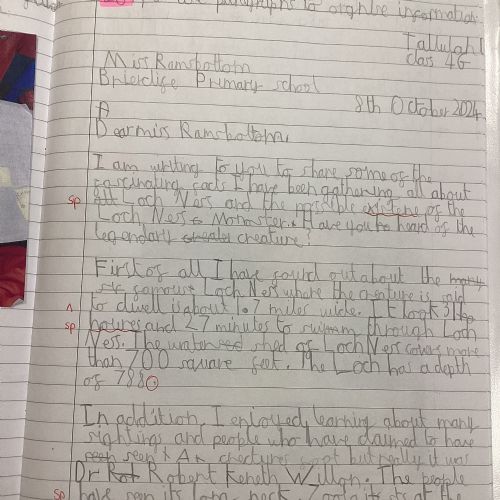 use paragraphs to organise information.
Tallulah
class 4G
Miss Ramsbottom
Primary school
8th October 2024
A
Dear miss Ramsbottom,
I am writing to you to share some of the
fascinating facts I have been gathering all about
sp all Loch Ness and the possible of the
Loch Ness Monaster. Have you heard of the
legendary creature?
First of all I have found out about the
famous Loch Ness where the creature is said
^ to dwell is about 1.7 miles wide. It took
sp houres and 27 minutes to swim through Loch
Ness. The water shed of Loch Ness covers more
than 700 square feet. The Loch has a depth
of 788
In addition, I enjoyed learning about many
sightings and people who have claimed to have
seen seen it A creatures foot but really it was
Dr Robert Keneth Willson. The people
sp have seen its long neck,